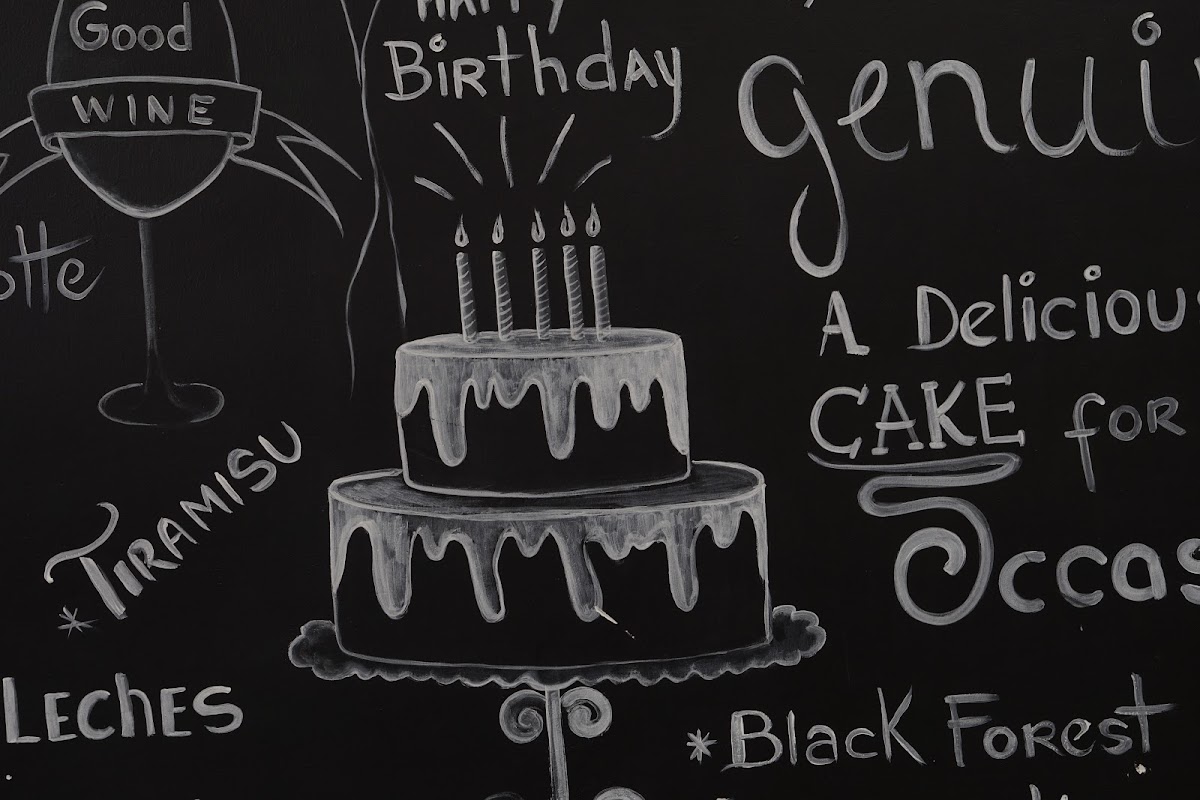 Good
WINE
HAPPY
BirthdAy
genui
otte
A Deliciou
CAKE foR
Occas
*TIRAMISU
LECHES
*BlacK Forest